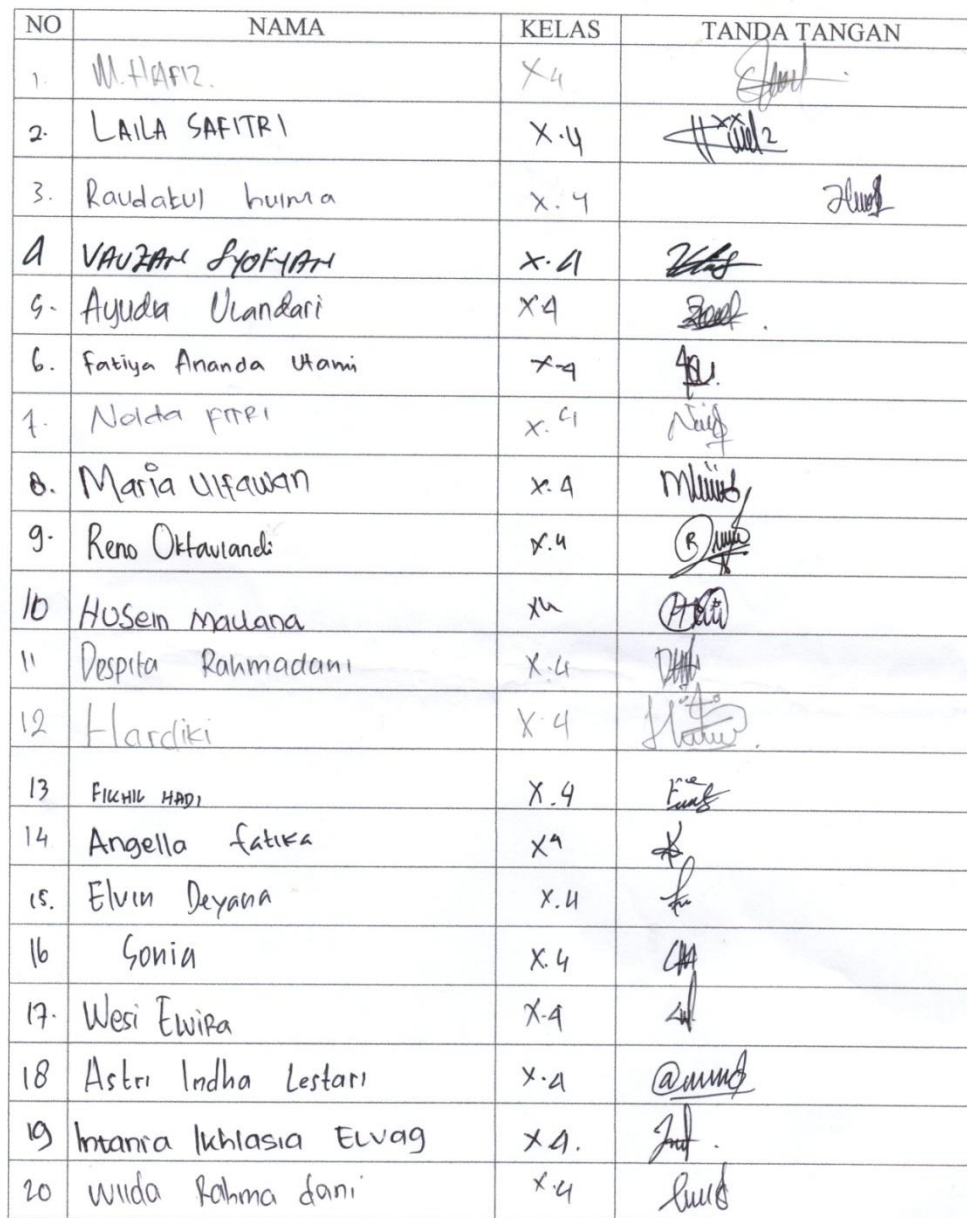 NO NAMA KELAS TANDA TANGAN
1. M. HAFIZ. X4
2. LAILA SAFITRI X.4
3. Raudatul huima X.4
4 VAUZAN SYOFYAN X.4
5. Ayuda Ulandari X4
6. Fatiya Ananda Utami X-4
7. Nolda FITRI X.4
8. Maria Ulfawan X.4
9. Reno Oktaviandi X.4
10 HUSein Maulana X4
11 Despita Rahmadani X.4
12 Hardiki X.4
13 FIKHIL HADI X.4
14 Angella fatika X4
15. Elvin Deyana X.4
16 Sonia X.4
17. Wesi Elvira X-4
18 Astri Indha Lestari X.4
19 Intania Ikhlasia ELVAG X4.
20 Wilda Rahma dani X.4